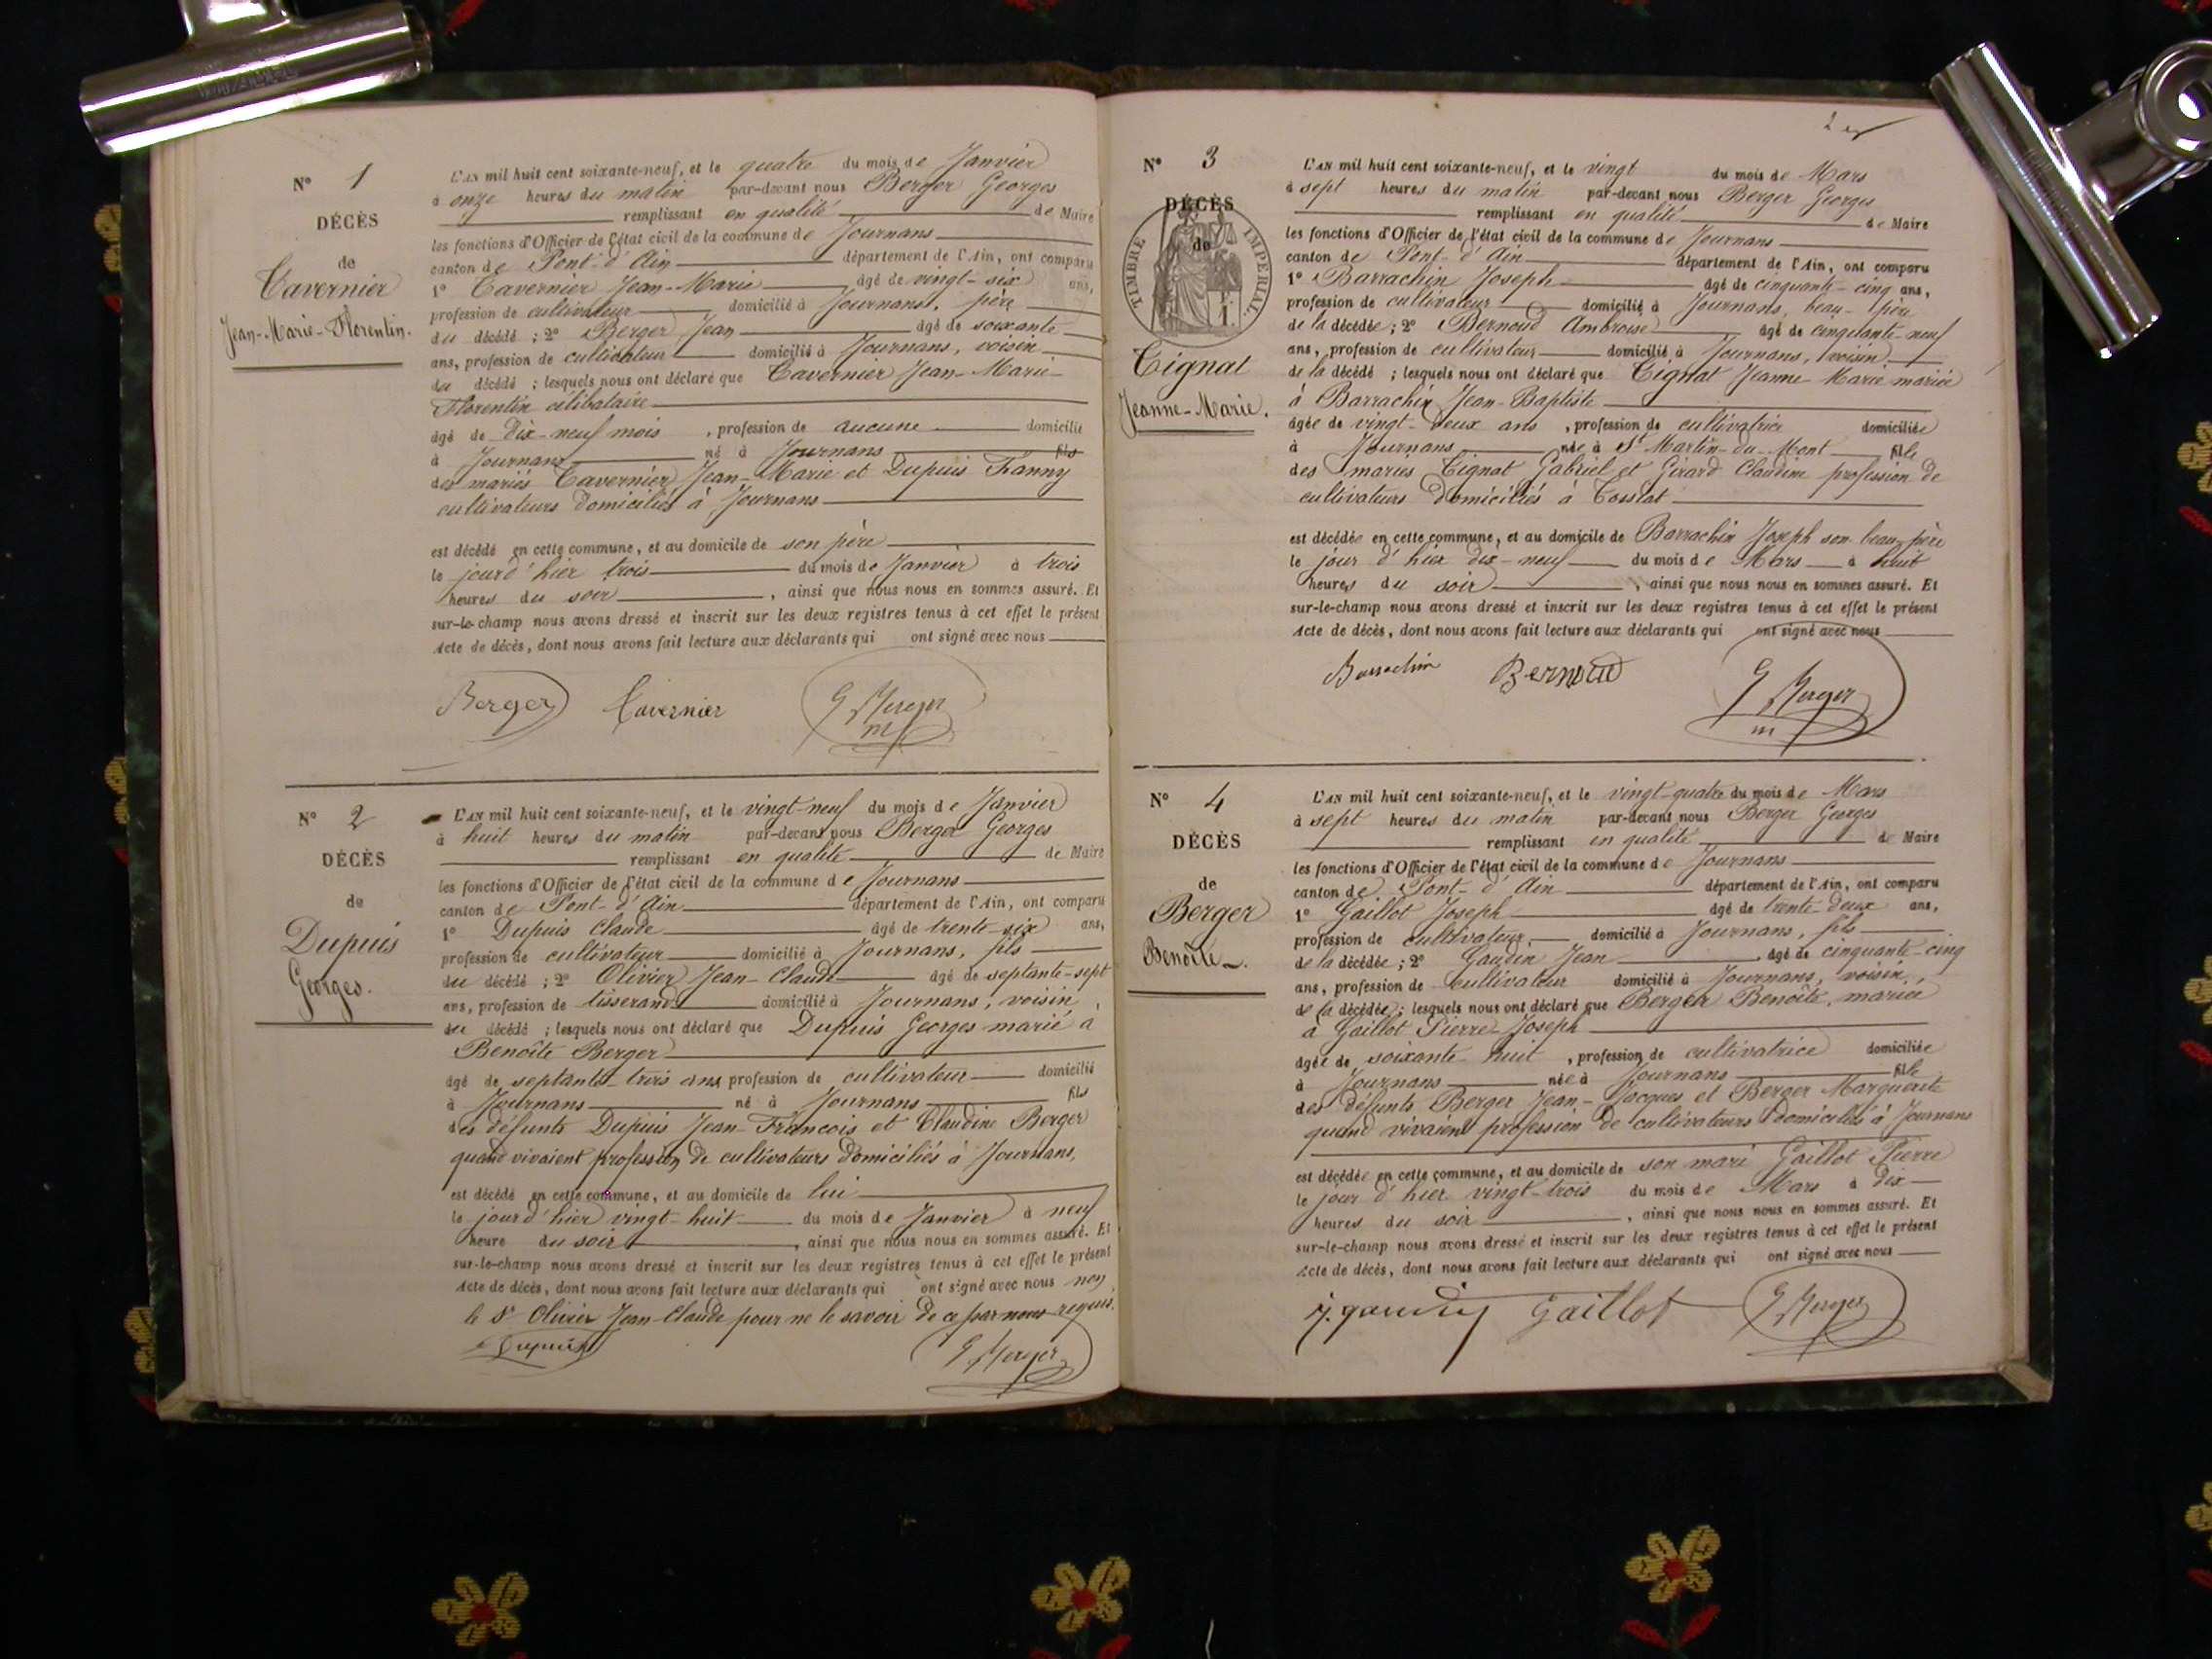 N° 1
DÉCÈS
de
Tavernier
Jean-Marie-Florentin.
L'AN mil huit cent soixante-neuf, et le quatre du mois de Janvier
à onze heures du matin par-devant nous Berger Georges
remplissant en qualité de Maire
les fonctions d'Officier de l'état civil de la commune de Journans
canton de Pont-d'Ain département de l'Ain, ont comparu
1° Tavernier Jean-Marie âgé de vingt-six ans,
profession de cultivateur domicilié à Journans, père
du décédé ; 2° Berger Jean âgé de soixante
ans, profession de cultivateur domicilié à Journans, voisin
du décédé ; lesquels nous ont déclaré que Tavernier Jean-Marie-
Florentin célibataire
âgé de dix-neuf mois , profession de aucune domicilié
à Journans né à Journans fils
des mariés Tavernier Jean-Marie et Dupuis Fanny
cultivateurs domiciliés à Journans
est décédé en cette commune, et au domicile de son père
le jour d'hier trois du mois de Janvier à trois
heures du soir , ainsi que nous nous en sommes assuré. Et
sur-le-champ nous avons dressé et inscrit sur les deux registres tenus à cet effet le présent
Acte de décès, dont nous avons fait lecture aux déclarants qui ont signé avec nous
Berger Tavernier G Berger
m
N° 2
DÉCÈS
de
Dupuis
Georges.
L'AN mil huit cent soixante-neuf, et le vingt-neuf du mois de Janvier
à huit heures du matin par-devant nous Berger Georges
remplissant en qualité de Maire
les fonctions d'Officier de l'état civil de la commune de Journans
canton de Pont-d'Ain département de l'Ain, ont comparu
1° Dupuis Claude âgé de trente-six ans,
profession de cultivateur domicilié à Journans, fils
du décédé ; 2° Olivier Jean-Claude âgé de septante-sept
ans, profession de tisserand domicilié à Journans, voisin
du décédé ; lesquels nous ont déclaré que Dupuis Georges marié à
Benoîte Berger
âgé de septante-trois ans profession de cultivateur domicilié
à Journans né à Journans fils
des défunts Dupuis Jean-François et Claudine Berger
quand vivaient profession de cultivateurs domiciliés à Journans,
est décédé en cette commune, et au domicile de lui
le jour d'hier vingt-huit du mois de Janvier à neuf
heure du soir , ainsi que nous nous en sommes assuré. Et
sur-le-champ nous avons dressé et inscrit sur les deux registres tenus à cet effet le présent
Acte de décès, dont nous avons fait lecture aux déclarants qui ont signé avec nous non
le Sr Olivier Jean-Claude pour ne le savoir de ce par nous requis.
Dupuis G Berger
N° 3
DÉCÈS
de
TIMBRE IMPÉRIAL.
Tignat
Jeanne-Marie.
L'AN mil huit cent soixante-neuf, et le vingt du mois de Mars
à sept heures du matin par-devant nous Berger Georges
remplissant en qualité de Maire
les fonctions d'Officier de l'état civil de la commune de Journans
canton de Pont-d'Ain département de l'Ain, ont comparu
1° Barrachin Joseph âgé de cinquante-cinq ans,
profession de cultivateur domicilié à Journans, beau-père
de la décédée ; 2° Bernoud Ambroise âgé de cinquante-neuf
ans, profession de cultivateur domicilié à Journans, voisin
de la décédé ; lesquels nous ont déclaré que Tignat Jeanne-Marie mariée
à Barrachin Jean-Baptiste
âgée de vingt-deux ans , profession de cultivatrice domiciliée
à Journans née à St Martin-du-Mont fille
des mariés Tignat Gabriel et Girard Claudine profession de
cultivateurs domiciliés à Tossiat
est décédée en cette commune, et au domicile de Barrachin Joseph son beau-père
le jour d'hier dix-neuf du mois de Mars à huit
heures du soir , ainsi que nous nous en sommes assuré. Et
sur-le-champ nous avons dressé et inscrit sur les deux registres tenus à cet effet le présent
Acte de décès, dont nous avons fait lecture aux déclarants qui ont signé avec nous
Barrachin Bernoud G Berger
m
N° 4
DÉCÈS
de
Berger
Benoîte
L'AN mil huit cent soixante-neuf, et le vingt-quatre du mois de Mars
à sept heures du matin par-devant nous Berger Georges
remplissant en qualité de Maire
les fonctions d'Officier de l'état civil de la commune de Journans
canton de Pont-d'Ain département de l'Ain, ont comparu
1° Gaillot Joseph âgé de trente-deux ans,
profession de cultivateur, domicilié à Journans, fils
de la décédée ; 2° Gaudin Jean âgé de cinquante-cinq
ans, profession de cultivateur domicilié à Journans, voisin,
de la décédée ; lesquels nous ont déclaré que Berger Benoîte, mariée
à Gaillot Pierre-Joseph
âgée de soixante-huit , profession de cultivatrice domiciliée
à Journans née à Journans fille
des défunts Berger Jean-Jacques et Berger Marguerite
quand vivaient profession de cultivateurs domiciliés à Journans
est décédée en cette commune, et au domicile de son mari Gaillot Pierre
le jour d'hier vingt-trois du mois de Mars à dix
heures du soir , ainsi que nous nous en sommes assuré. Et
sur-le-champ nous avons dressé et inscrit sur les deux registres tenus à cet effet le présent
Acte de décès, dont nous avons fait lecture aux déclarants qui ont signé avec nous
J. gaudin Gaillot G Berger